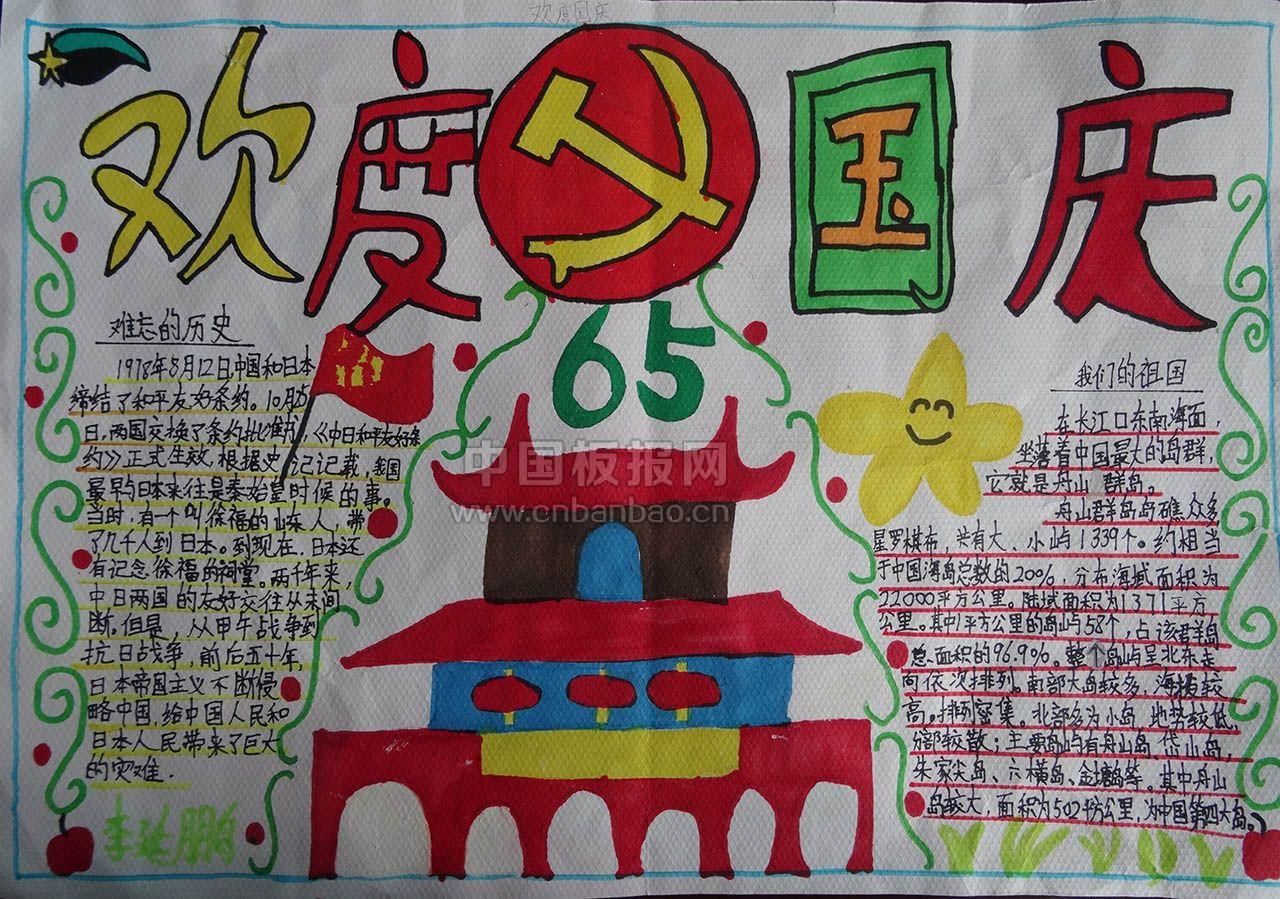 欢度国庆
欢度国庆
65
难忘的历史
1978年8月12日中国和日本
缔结了和平友好条约。10月23
日,两国交换了条约批准书,《中日和平友好条
约》正式生效,根据史记记载,我国
最早与日本来往是秦始皇时候的事。
当时,有一个叫徐福的山东人,带
了几千人到日本。到现在,日本还
有记念徐福的祠堂。两千年来,
中日两国的友好交往从未间
断,但是,从甲午战争到
抗日战争,前后五十年,
日本帝国主义不断侵
略中国,给中国人民和
日本人民带来了巨大
的灾难.
李延鹏
我们的祖国
在长江口东南海面,
坐落着中国最大的岛群,
它就是舟山群岛。
舟山群岛岛礁众多
星罗棋布,共有大、小屿1339个。约相当
于中国海岛总数的20%,分布海域面积为
22000平方公里。陆域面积为1371平方
公里。其中1平方公里的岛屿58个,占该群岛
总面积的96.9%。整个岛屿呈北东走
向依次排列。南部大岛较多,海拔较
高,排列密集。北部多为小岛,地势较低,
分部较散;主要岛屿有舟山岛、岱山岛,
朱家尖岛、六横岛、金塘岛等。其中舟山
岛较大,面积为502平方公里,为中国第四大岛。
中国板报网
www.cnbanbao.cn